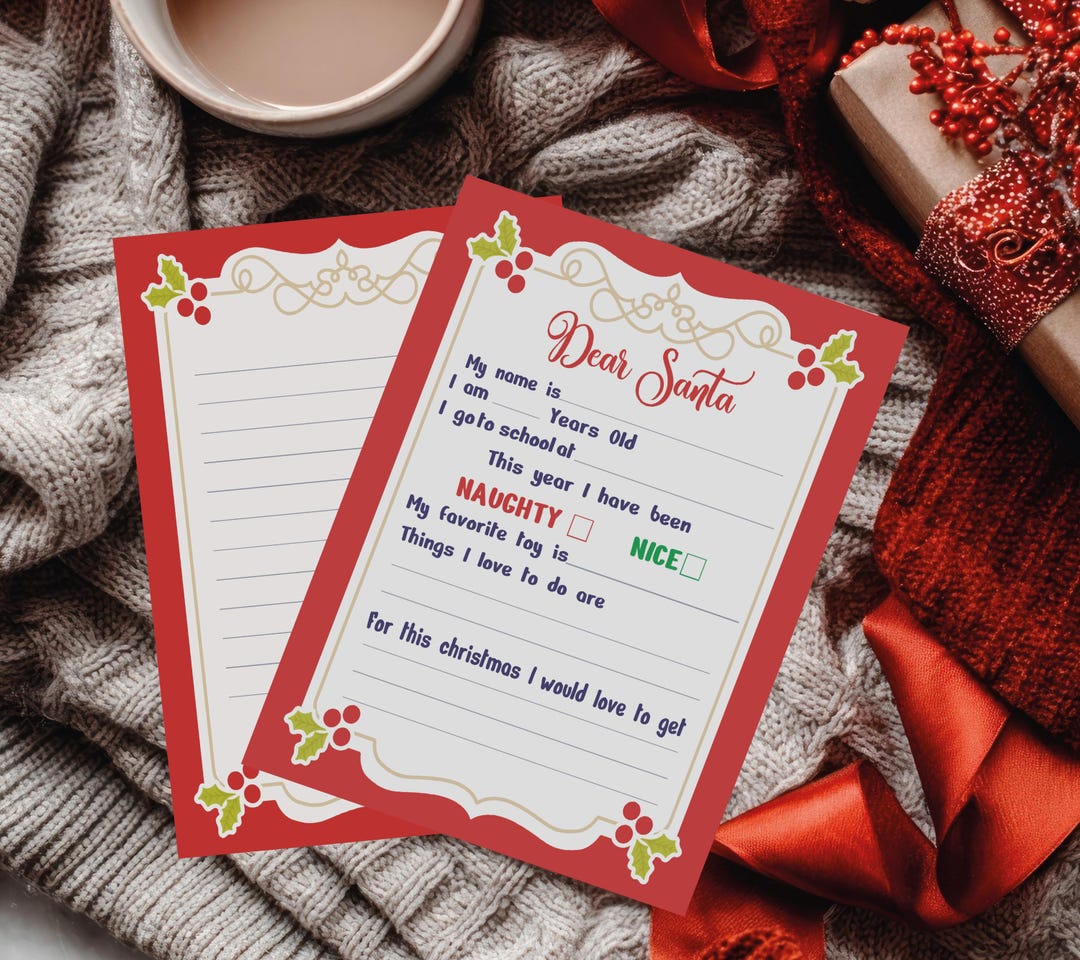 Dear Santa
My name is
I am Years Old
I go to school at
This year I have been
NAUGHTY NICE
My favorite toy is
Things I love to do are
For this christmas I would love to get